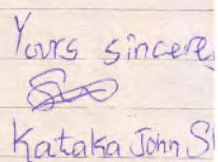 Yours sincere
Kataka John S